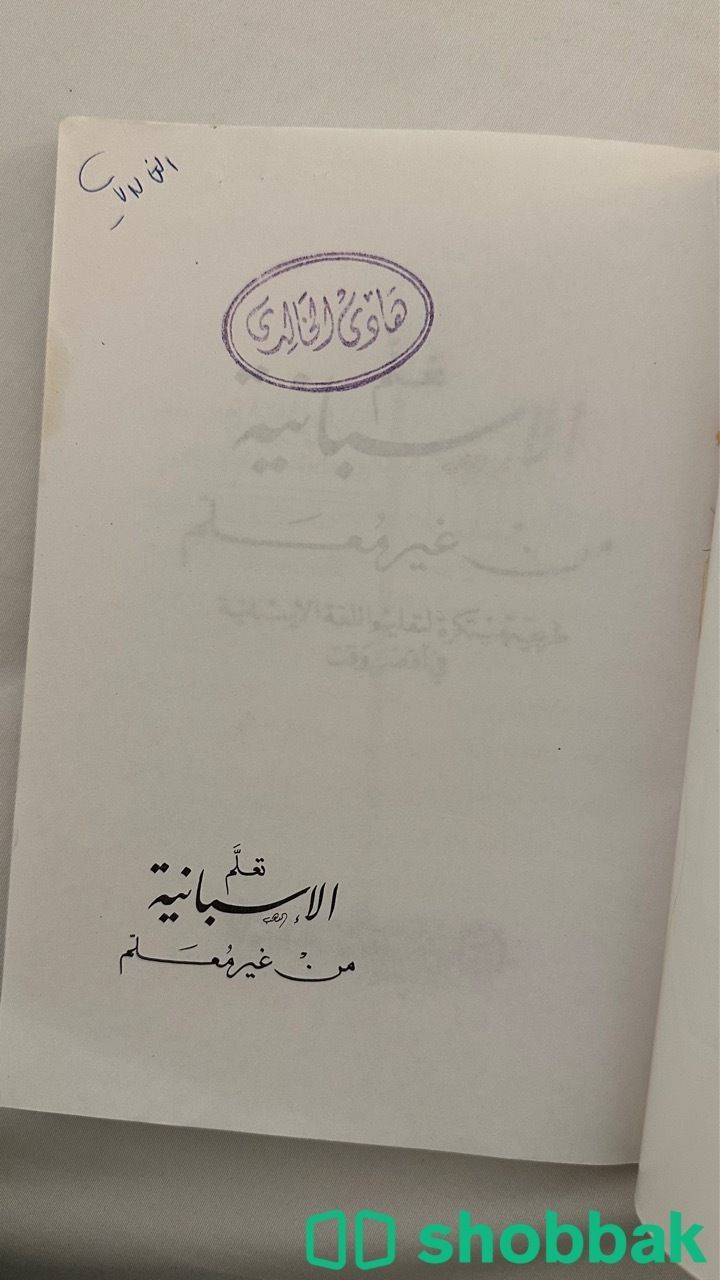 هَادِي الخَالِدِي
تعلَّم
الإسبانية
منْ غير مُعَلّم
shobbak